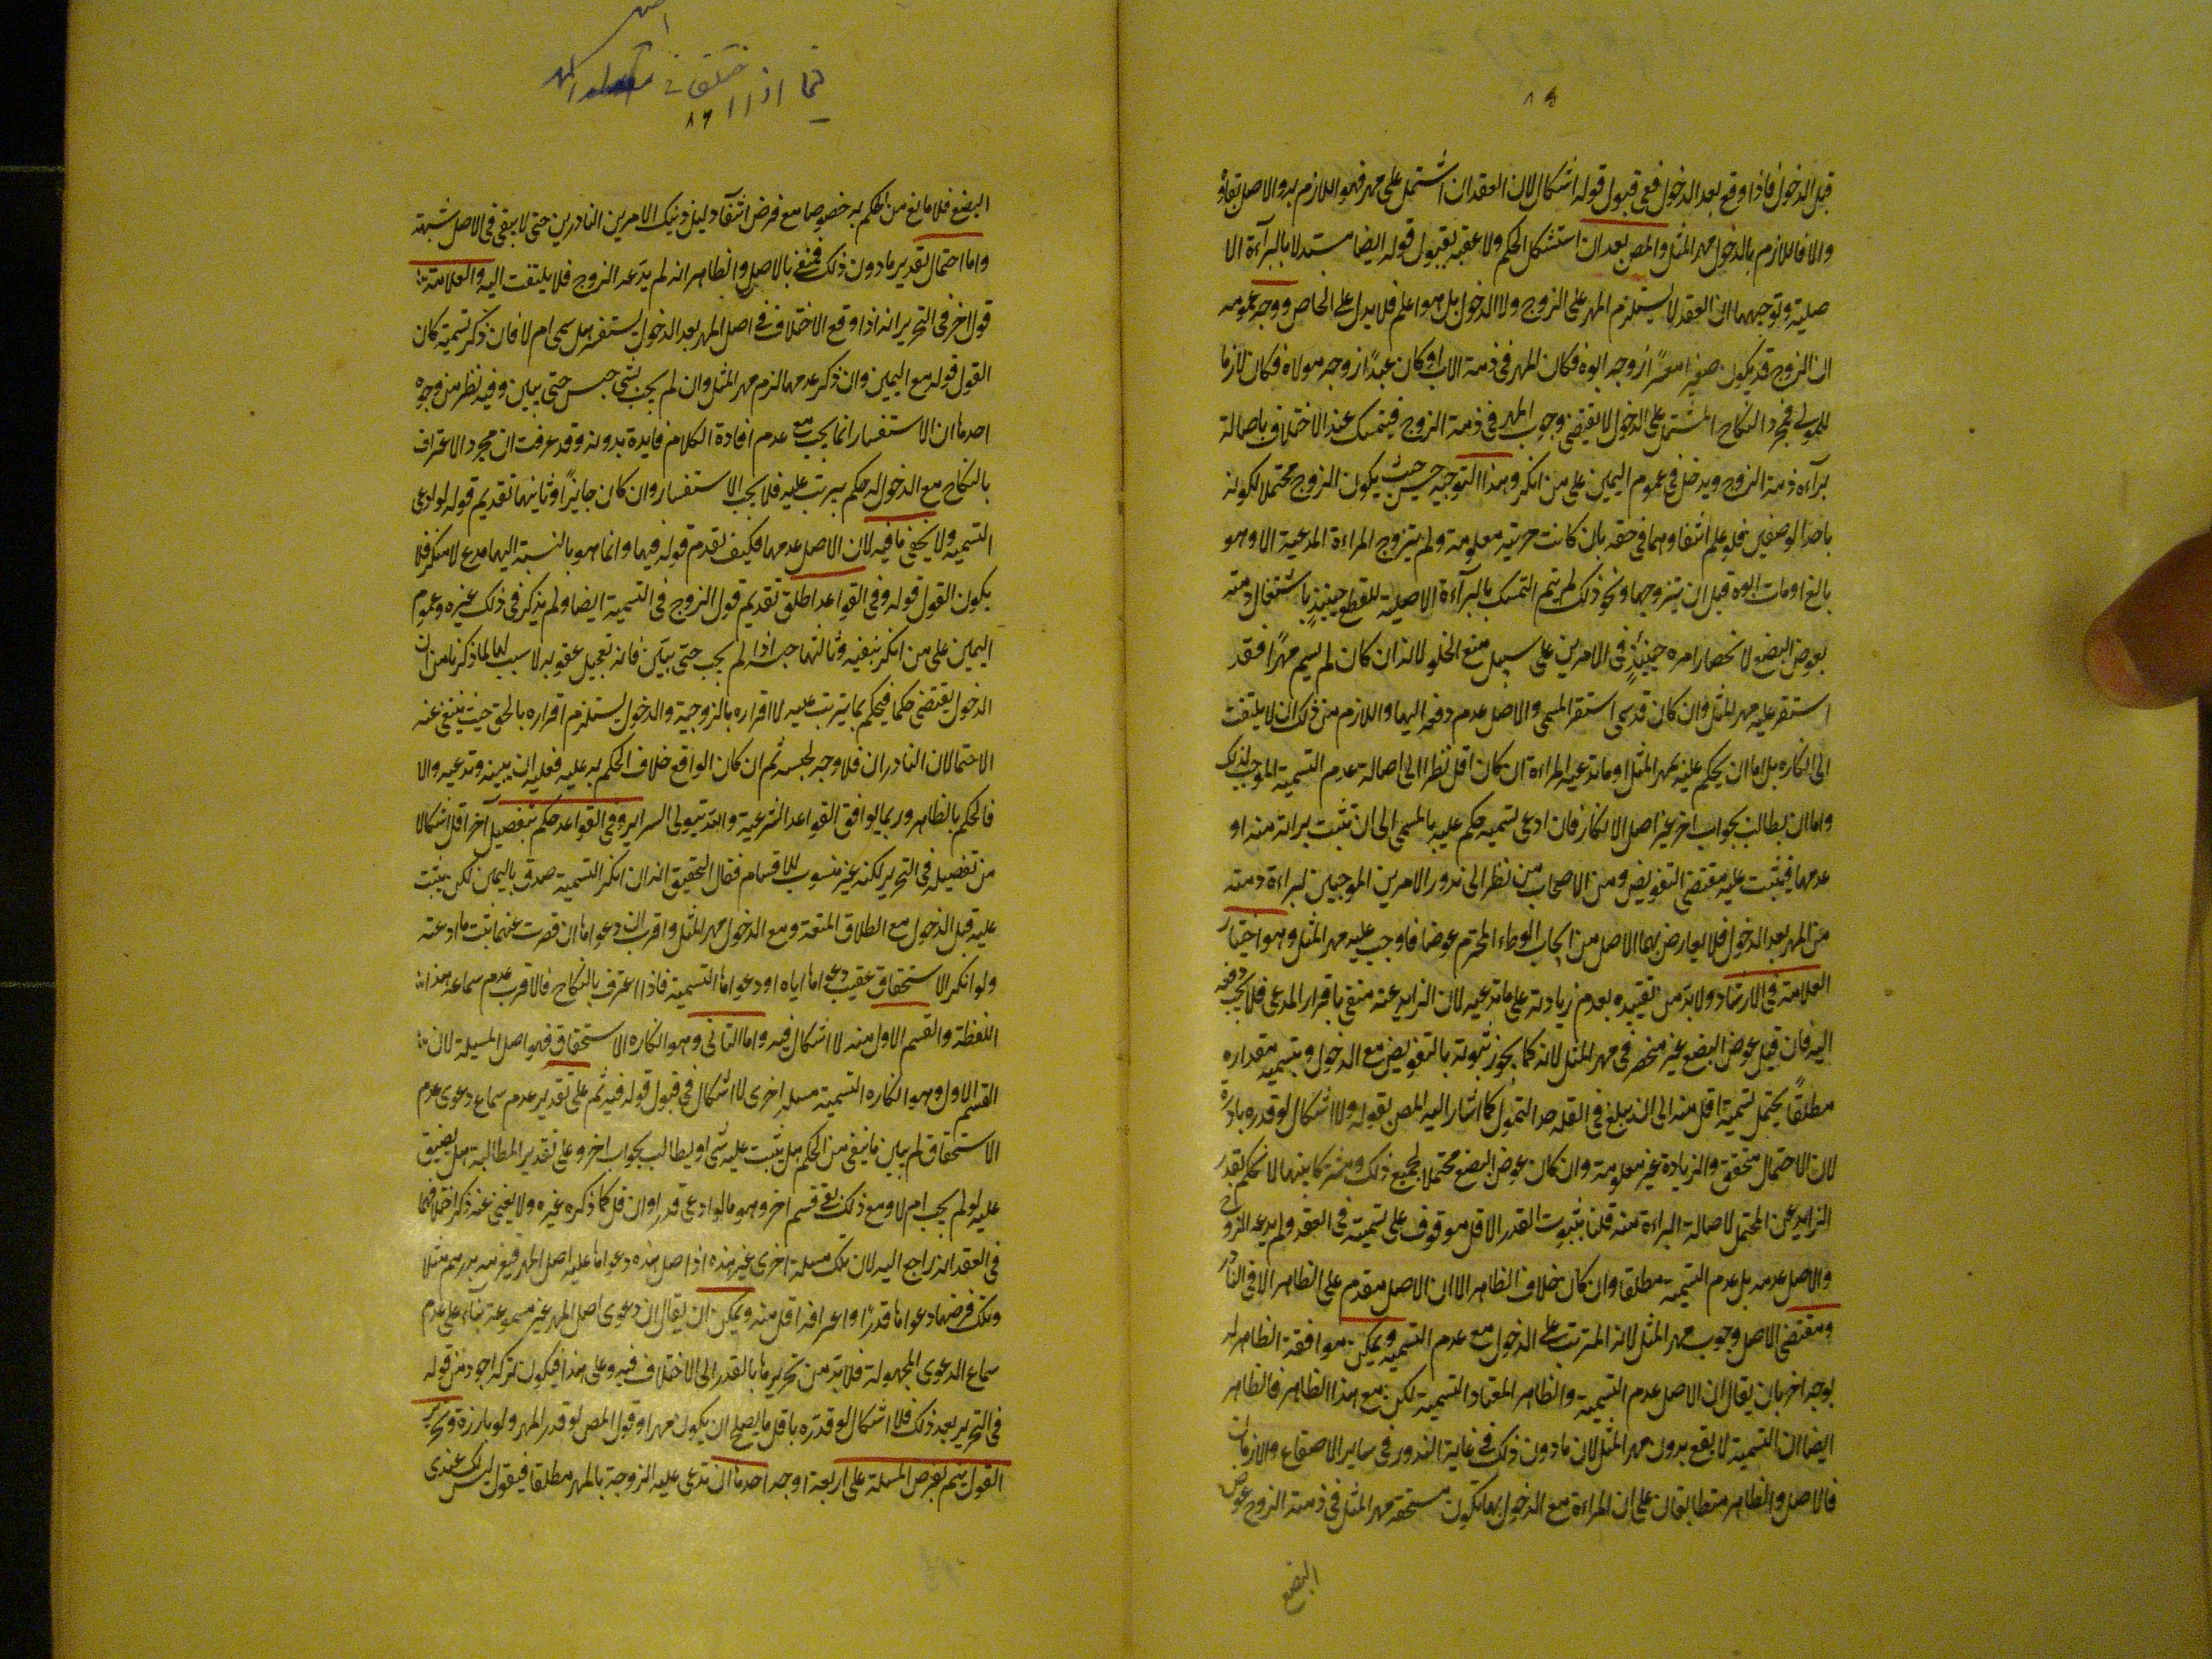 ٨٥
قبل الدخول فاذا وقع بعد الدخول ففى قبول قوله اشكال لان العقد ان اشتمل على مهر فهو اللازم به والاصل بقاؤه
والا فاللازم بالدخول مهر المثل والمص بعد ان استشكل الحكم ولا عقبه بقبول قوله ايضا مستدلا بالبرآءة الا
صلية وتوجيهها ان العقد لا يستلزم المهر على الزوج ولا الدخول بل هو اعلم فلا يدل على الخاص ووجه عمومه
ان الزوج قد يكون صغيرا معسرًا زوجه ابوه فكان المهر فى ذمة الاب او كان عبدًا زوجه مولاه فكان لازما
للمولى فمجرد النكاح المشتمل على الدخول لا يقتضى وجوب المهر فى ذمة الزوج فيتمسك عند الاختلاف باصالة
برآءه ذمة الزوج ويدخل فى عموم اليمين على من انكر وهذا التوجيه حسن حيث يكون الزوج محتملا لكونه
باحد الوصفين فلو علم انتفاوهما فى حقه بان كانت حريته معلومة ولم يتزوج المراءة المدعية الا وهو
بالغ او مات ابوه قبل ان يتزوجها ونحو ذلك لم يتم التمسك بالبرآءة الاصلية للقطع حينيذٍ باشتغال ذمته
بعوض البضع لانحصار امره حينئذٍ فى الامرين على سبيل منع الخلو لانه ان كان لم يسم مهرًا فقد
استقر عليه مهر المثل وان كان قد سمى استقر المسمى والاصل عدم دفعه اليها واللازم من ذلك ان لا يلتفت
الى انكاره بل اما ان يحكم عليه بمهر المثل او ما تدعيه المراءة ان كان اقل نظرا الى اصالة عدم التسمية الموجب لذلك
واما ان يطالب بجواب اخر غير اصل الانكار فان ادعى تسمية حكم عليه بالمسمى الى ان تثبت برائة منه او
عدمها فيثبت عليه مقتضى التفويض ومن الاصحاب من نظر الى ندور الامرين الموجبين لبراءة ذمته
من المهر بعد الدخول فلا يعارض بهما الاصل من ايجاب الوطاء المحترم عوضا فاوجب عليه مهر المثل وهو اختيار
العلامة فى الارشاد ولا بد من تقييده بعدم زيادته على ما تدعيه لان الزايد عنه منفى باقرار المدعى فلا يجب دفعه
اليه فان قيل عوض البضع غير منحصر فى مهر المثل لانه كما يجوز ثبوته بالتفويض مع الدخول وبتسمية مقداره
مطلقًا يحتمل تسمية اقل منه الى ان يبلغ فى القلة حد التمول كما اشار اليه المص بقوله ولا اشكال لو قدره بارزة
لان الاحتمال متحقق والزيادة غير معلومة وان كان عوض البضع محتملا لجميع ذلك ومشتركا بينها لا نحكم بقدر
الزايد عن المحتمل لاصالة البراءة منه قلنا بثبوت القدر الاقل موقوف على تسمية فى العقد ولم يدعه الزوج
والاصل عدمه بل عدم التسمية مطلقا وان كان خلاف الظاهر الا ان الاصل مقدم على الظاهر الا فى النادر
ومقتضى الاصل وجوب مهر المثل لانه المترتب على الدخول مع عدم التسمية ويمكن موافقة الظاهر له
بوجه اخر بان يقال ان الاصل عدم التسمية والظاهر المعتاد التسمية لكن مع هذا الظاهر فالظاهر
ايضا ان التسمية لا يقع بدون مهر المثل لان ما دون ذلك فى غاية الندور فى ساير الاصقاع والازمان
فالاصل والظاهر متطابقان على ان المراءة مع الدخول بها تكون مستحقة مهر المثل فى ذمة الزوج عوض
البضع
٨٦
البضع فلا مانع من الحكم به خصوصا مع فرض انتفاء دليل ذينك الامرين النادرين حتى لا يبقى فى الاصل شبهة
واما احتمال تقدير ما دون ذلك فمنفى بالاصل والظاهر انه لم يدعه الزوج فلا يلتفت اليه وللعلامة
قول اخر فى التحرير انه اذا وقع الاختلاف فى اصل المهر بعد الدخول يستفسر هل سمى ام لا فان ذكر تسمية كان
القول قوله مع اليمين وان ذكر عدمها لزم مهر المثل وان لم يجب بشى حبس حتى يبين وفيه نظر من وجوه
احدها ان الاستفسار انما يجب مع عدم افادة الكلام فايدة بدونه وقد عرفت ان مجرد الاعتراف
بالنكاح مع الدخول له حكم يترتب عليه فلا يجب الاستفسار وان كان جايزًا وثانيها تقديم قوله لو ادعى
التسمية ولا يخفى ما فيه لان الاصل عدمها فكيف تقدم قوله فيها وانما هو بالنسبة اليها مدع لا منكر فلا
يكون القول قوله وفى القواعد اطلق تقديم قول الزوج فى التسمية ايضا ولم يذكر فى ذلك غيره وعموم
اليمين على من انكر ينفيه وثالثها حبسه اذا لم يجب حتى يبين فانه تعجيل عقوبه لا سبب لها لما ذكرنا من ان
الدخول يقتضى حكما فيحكم بما يترتب عليه لا اقراره بالزوجية والدخول يستلزم اقراره بالحق حيث ينتفى عنه
الاحتمالان النادران فلا وجه لحبسه ثم ان كان الواقع خلاف الحكم به عليه فعليه ان يبينه وتدعيه والا
فالحكم بالظاهر وربما يوافق القواعد الشرعية والله يتولى السراير وفى القواعد حكم بتفصيل آخر اقل اشكالا
من تفصيله فى التحرير لكنه غير مستوف للاقسام فقال التحقيق انه ان انكر التسمية صدق باليمين لكن يثبت
عليه قبل الدخول مع الطلاق المتعة ومع الدخول مهر المثل والاقرب ان دعواها ان قصرت عنهما ثبت ما ادعته
ولو انكر الاستحقاق عقيب دعواها اياه او دعواها التسمية فاذا اعترف بالنكاح فالاقرب عدم سماعه هذا
اللفظة والقسم الاول منه لا اشكال فيه واما الثانى وهو انكاره الاستحقاق فهو اصل المسيلة لان
القسم الاول وهو انكاره التسمية مسيلة اخرى لا اشكال فى قبول قوله فيه ثم على تقدير عدم سماع دعوى عدم
الاستحقاق لم يبين ما ينبغى من الحكم هل يثبت عليه شى او يطالب بجواب اخر وعلى تقدير المطالبة هل يضيق
عليه لو لم يجب ام لا ومع ذلك بقى قسم اخر وهو ما لو ادعى قدرا وان قل كما ذكره غيره ولا يغنى عنه ذكر اختلافهما
فى العقد انه راجع اليه لان تلك مسيلة اخرى غير هذه اذ اصل هذه دعواها عليه اصل المهر فيعترف بدرهم مثلا
وتلك فرضها دعواها قدرًا واعترافه اقل منه ويمكن ان يقال ان دعوى اصل المهر غير مسموعة بناء على عدم
سماع الدعوى المجهولة فلا بد من تحريرها بالقدر الى الاختلاف فيه وعلى هذا فيكون تركه اجود من قوله
فى التحرير بعد ذلك فلا اشكال لو قدره باقل ما يصلح ان يكون مهرا وقول المص لو قدر المهر ولو بارزة وتحرير
القول يتم بفرض المسيلة على اربعة اوجه احدها ان تدعى عليه الزوجة بالمهر مطلقا فيقول ليس لك عندى